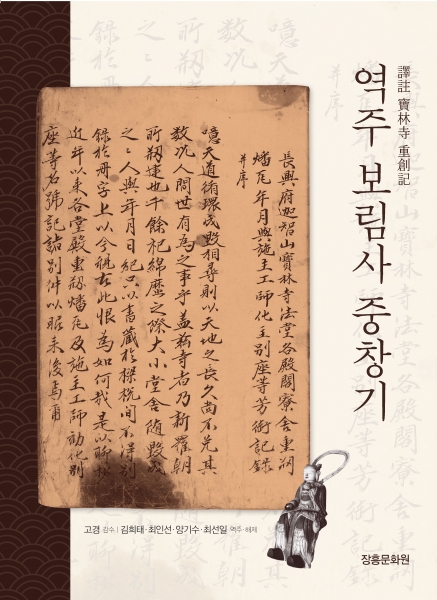 譯註 寶林寺 重創記
역주 보림사 중창기
長興府迦智山寶林寺法堂各殿閣寮舍重刱
燔瓦年月與施主工師化主別座等芳記錄
并序
噫天道循環成毁相尋則以天地之長久尚不免其
數况人間世有爲之事乎盖玆寺者乃新羅朝
所刱建也千餘祀綿歷之際大小堂舍隨毁成
之之人與年月日紀以書藏於樑間不得別
錄於冊字上以今視昔此恨爲如何哉是以聊於
近年以來各堂殿重刱燔瓦及施主工師化別
座等名號記諸別件以後焉爾
고경 감수 | 김희태·최인선·양기수·최선일 역주·해제
장흥문화원